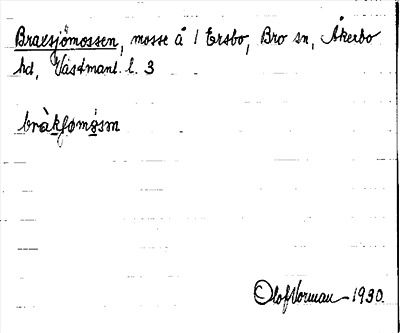 Braxsjömossen, mosse å 1 Ersbo, Bro sn, Åkerbo
hd, Västmanl. l. 3
bràkʃømòsm
Olof Norman 1930.